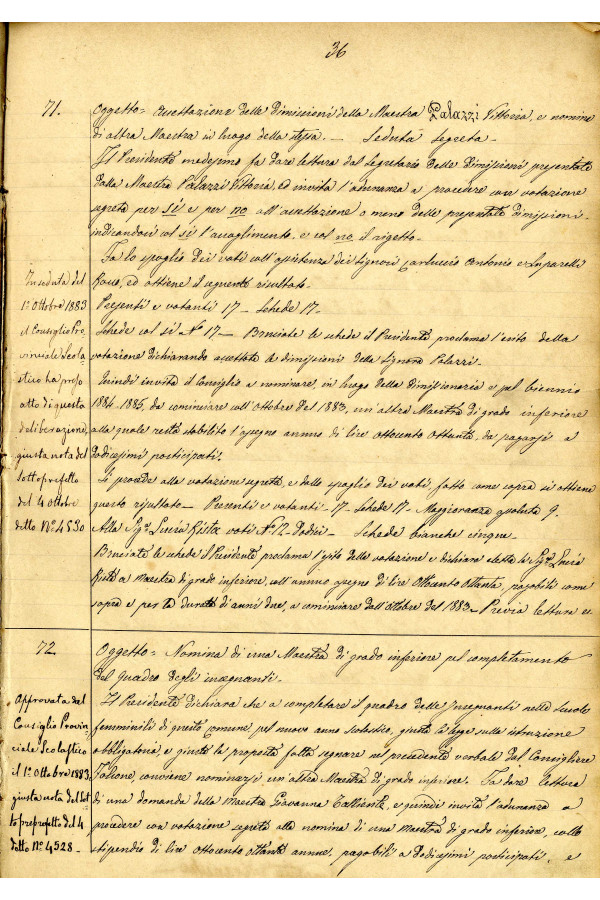 36
71.
Oggetto = Accettazione delle Dimissioni della Maestra Palazzi Vittoria, e nomina
di altra Maestra in luogo della stessa. — Seduta segreta —
Il Presidente medesimo fa dare lettura dal Segretario delle Dimissioni presentate
dalla Maestra Palazzi Vittoria, ed invita l'adunanza a procedere con votazione
segreta per si e per no all'accettazione o meno delle presentate dimissioni.
indicandosi col si l'accoglimento, e col no il rigetto.
Fa lo spoglio dei voti coll'assistenza dei Signori Carluccio Antonio e
ed ottiene il seguente risultato.
Presenti e votanti 17 — Schede 17.
Schede col si N° 17 — Bruciate le schede il Presidente proclama l'esito della
votazione dichiarando accettate le dimissioni della Signora Palazzi.
Quindi invita il Consiglio a nominare, in luogo della dimissionaria e pel biennio
1884-1885, da cominciare coll'Ottobre del 1883, un'altra Maestra di grado inferiore
alla quale resta stabilito l'assegno annuo di lire Ottocento Ottanta, da pagarsi a
dodicesimi posticipati.
Si procede alla votazione segreta, e dallo spoglio dei voti, fatto come sopra si ottiene
questo risultato — Presenti e votanti — 17 — Schede 17 — Maggioranza assoluta 9.
Alla Sig.ra Lucia Rista voti N° 12 Dodici — Schede bianche cinque —
Bruciate le schede il Presidente proclama l'esito della votazione e dichiara eletta la Sig.ra Lucia
Rista a Maestra di grado inferiore, coll'annuo assegno di lire Ottocento Ottanta, pagabili come
sopra e per la durata di anni due, a cominciare dall'Ottobre del 1883 — Previa lettura e
In seduta del
1° Ottobre 1883
il Consiglio Pro
vinciale Scola
stico ha preso
atto di questa
deliberazione,
giusta nota del
Sottoprefetto
del 4 Ottobre
detto N° 4530
72
Oggetto = Nomina di una Maestra di grado inferiore pel completamento
del quadro degli insegnanti.
Il Presidente dichiara che a completare il quadro delle Insegnanti nelle scuole
femminili di questo Comune, pel nuovo anno scolastico, giusta la legge sulla istruzione
obbligatoria, e giusta la proposta fatta segnare nel precedente verbale dal Consigliere
conviene nominarsi un'altra Maestra di grado inferiore. Fa dare lettura
di una domanda della Maestra Giovanna e quindi invita l'adunanza a
procedere con votazione segreta alla nomina di una maestra di grado inferiore, collo
stipendio di lire Ottocento Ottanta annue, pagabili a Dodicesimi posticipati, e
Approvata dal
Consiglio Provin
ciale Scolastico
il 1° Ottobre 1883
giusta nota del Sot
to prefetto del 4
detto N° 4528 —